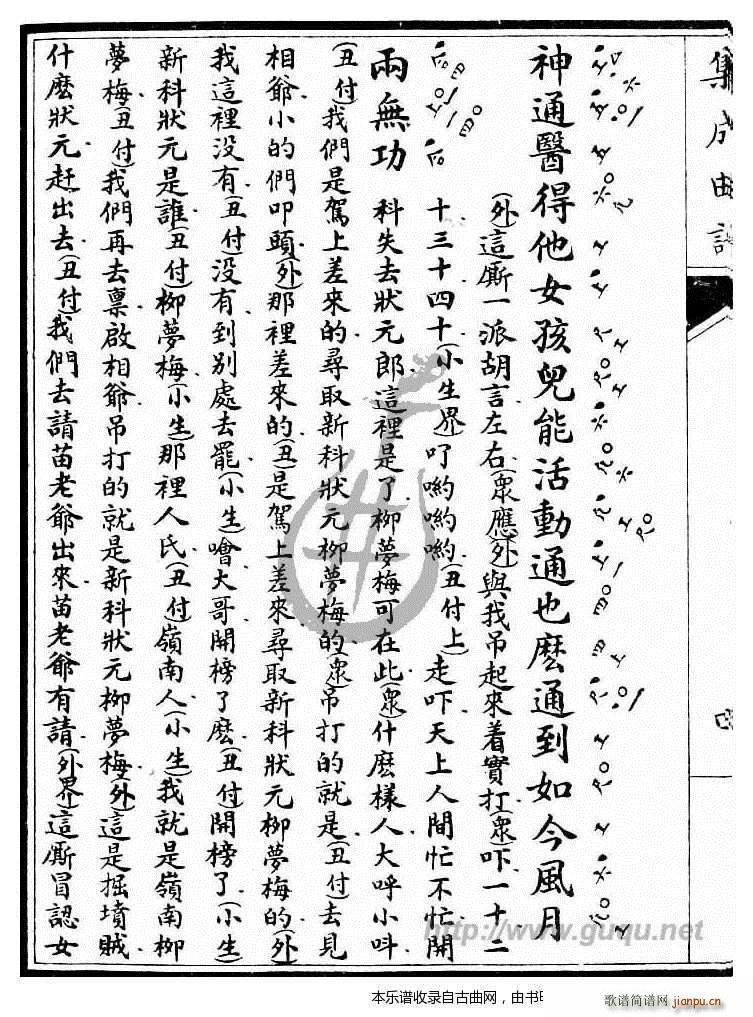 集成曲譜
神通醫得他女孩兒能活動通也麽通到如今風月
(外)這厮一派胡言左右(衆應)(外)與我吊起來着實打(衆)吓一十二
十三十四十(小生界)叮喲喲喲(丑付上)走吓天上人間忙不忙開
兩無功 科失去狀元郎這裡是了柳夢梅可在此(衆)什麽樣人大呼小呌
(丑付)我們是駕上差來的尋取新科狀元柳夢梅的(衆)吊打的就是(丑付)去見
相爺小的們叩頭(外)那裡差來的(丑)是駕上差來尋取新科狀元柳夢梅的(外)
我這裡没有(丑付)没有到別處去罷(小生)噲大哥開榜了麽(丑付)開榜了(小生)
新科狀元是誰(丑付)柳夢梅(小生)那裡人氏(丑付)嶺南人(小生)我就是嶺南柳
夢梅(丑付)我們再去禀啟相爺吊打的就是新科狀元柳夢梅(外)這是掘墳賊
什麽狀元赶出去(丑付)我們去請苗老爺出來苗老爺有請(外界)這厮冒認女
http://www.guqu.net
本乐谱收录自古曲网，由书
歌谱简谱网 jianpu.cn